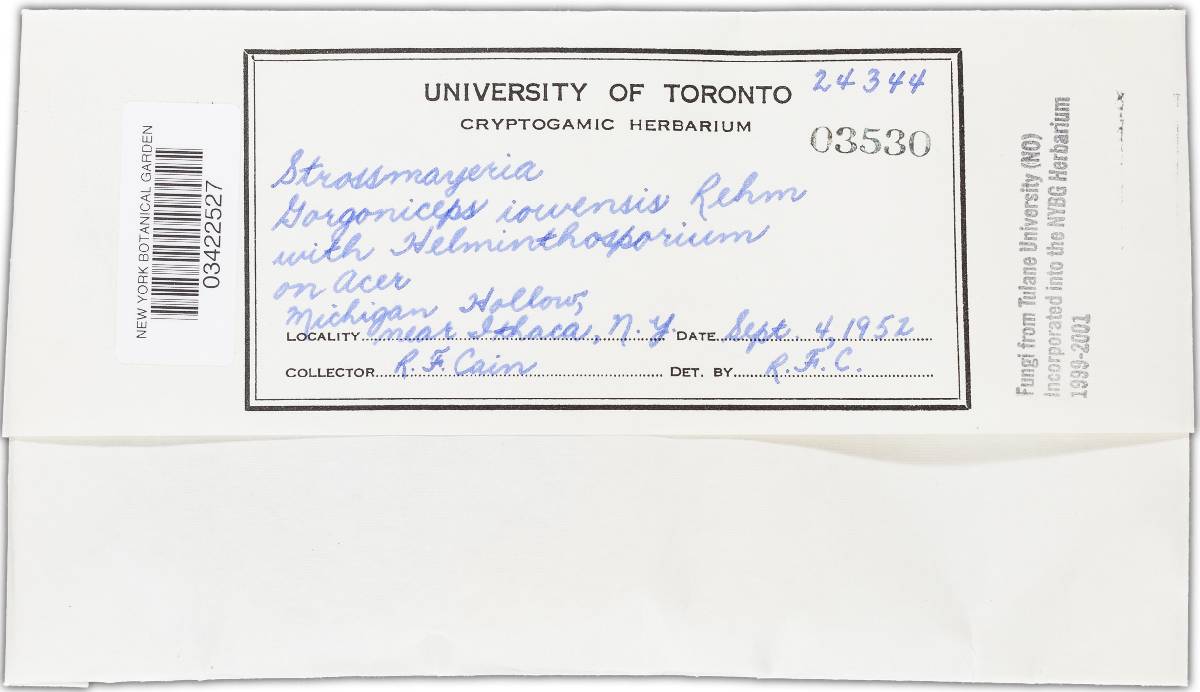 UNIVERSITY OF TORONTO
24344
CRYPTOGAMIC HERBARIUM
03530
Strossmayeria
Gorgoniceps iowensis Rehm
with Helminthosporium
on Acer
Michigan Hollow,
LOCALITY near Ithaca, N.Y. DATE Sept. 4, 1952
COLLECTOR R. F. Cain DET. BY R. F. C.
NEW YORK BOTANICAL GARDEN
03422527
Fungi from Tulane University (NO)
Incorporated into the NYBG Herbarium
1999-2001